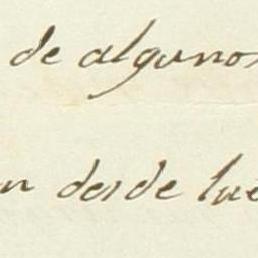 de algunos
n desde lue